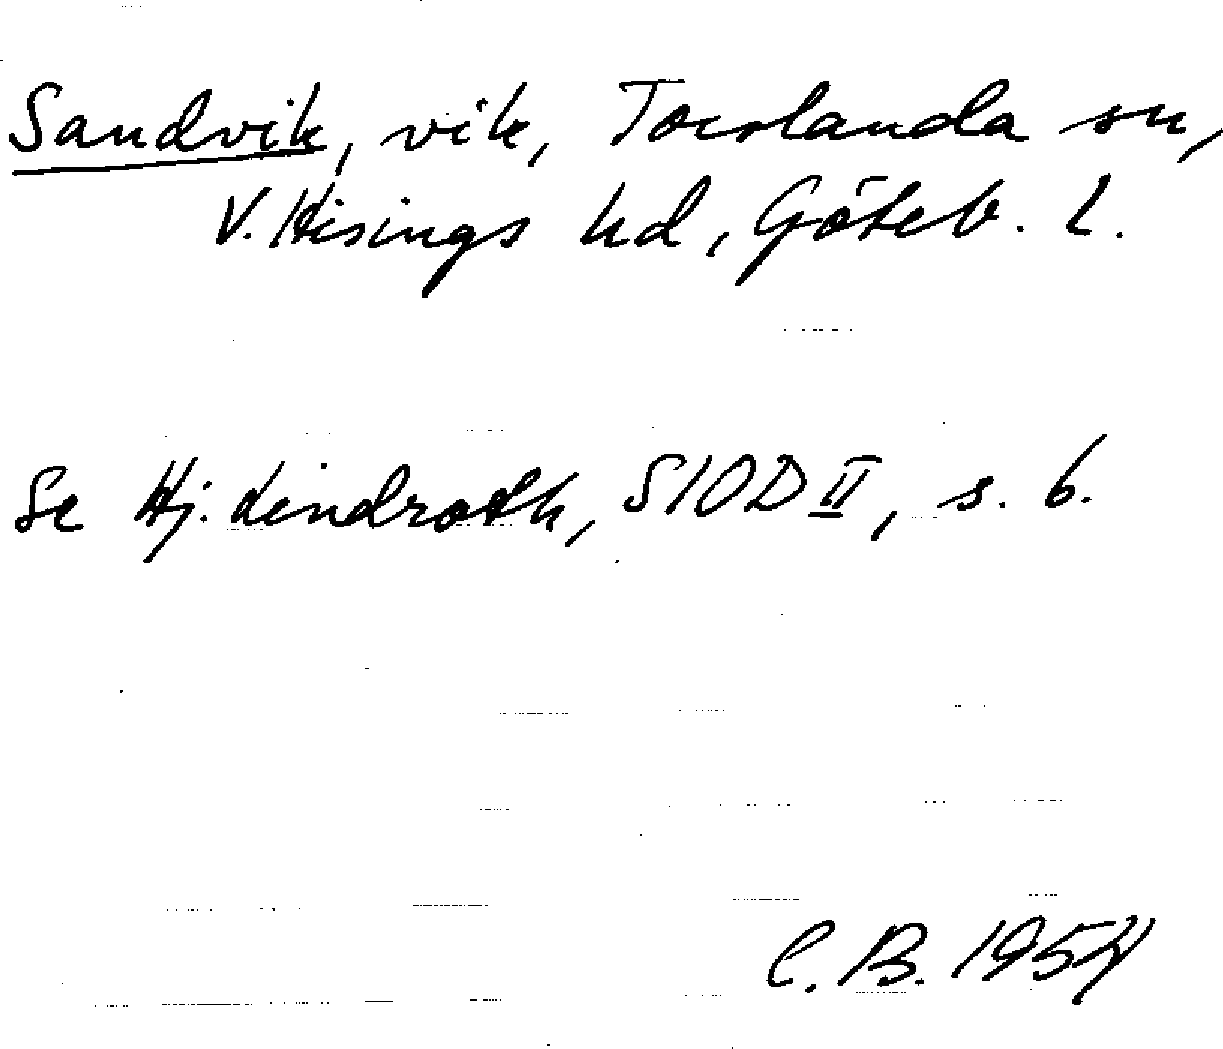 Sandvik, vik, Torslanda sn,
V. Hisings hd, Göteb. l.
Se Hj. Lindroth, SIOD II, s. 6.
C. B. 1954